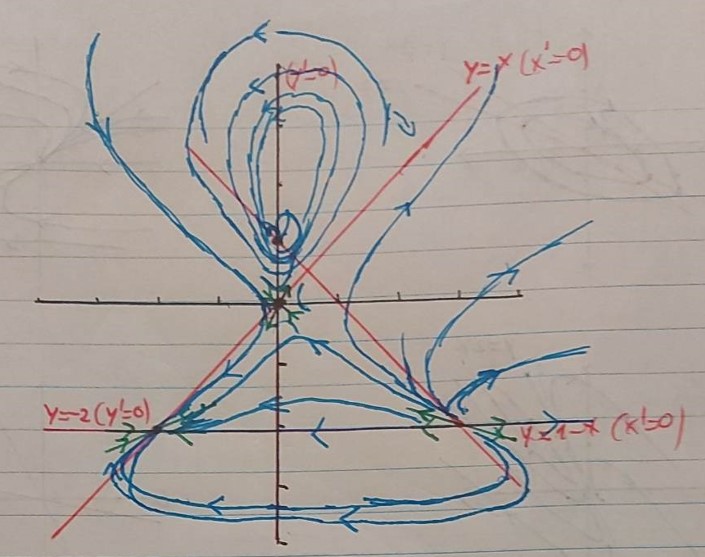 (y'=0)
y=x (x'=0)
y=-2 (y'=0)
y=1-x (x'=0)